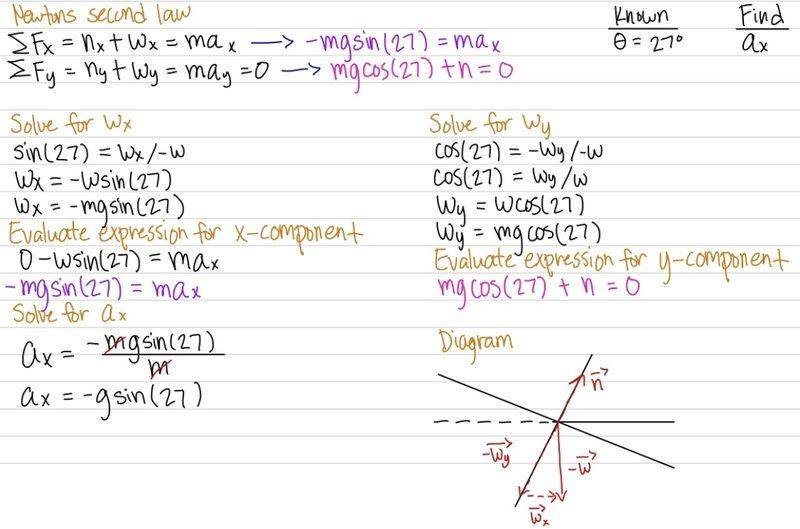 Newtons second law
ΣFx = nx + wx = max → -mgsin(27) = max
ΣFy = ny + wy = may = 0 → mgcos(27) + n = 0
Known
θ = 27°
Find
ax
Solve for Wx
sin(27) = Wx/-w
Wx = -Wsin(27)
Wx = -mgsin(27)
Evaluate expression for x-component
0-wsin(27) = max
-mgsin(27) = max
Solve for ax
ax = -mgsin(27)/m
ax = -gsin(27)
Solve for Wy
cos(27) = -Wy/-w
cos(27) = Wy/w
Wy = Wcos(27)
Wy = mgcos(27)
Evaluate expression for y-component
mgcos(27) + n = 0
Diagram
n→
-Wy→
-W→
Wx→